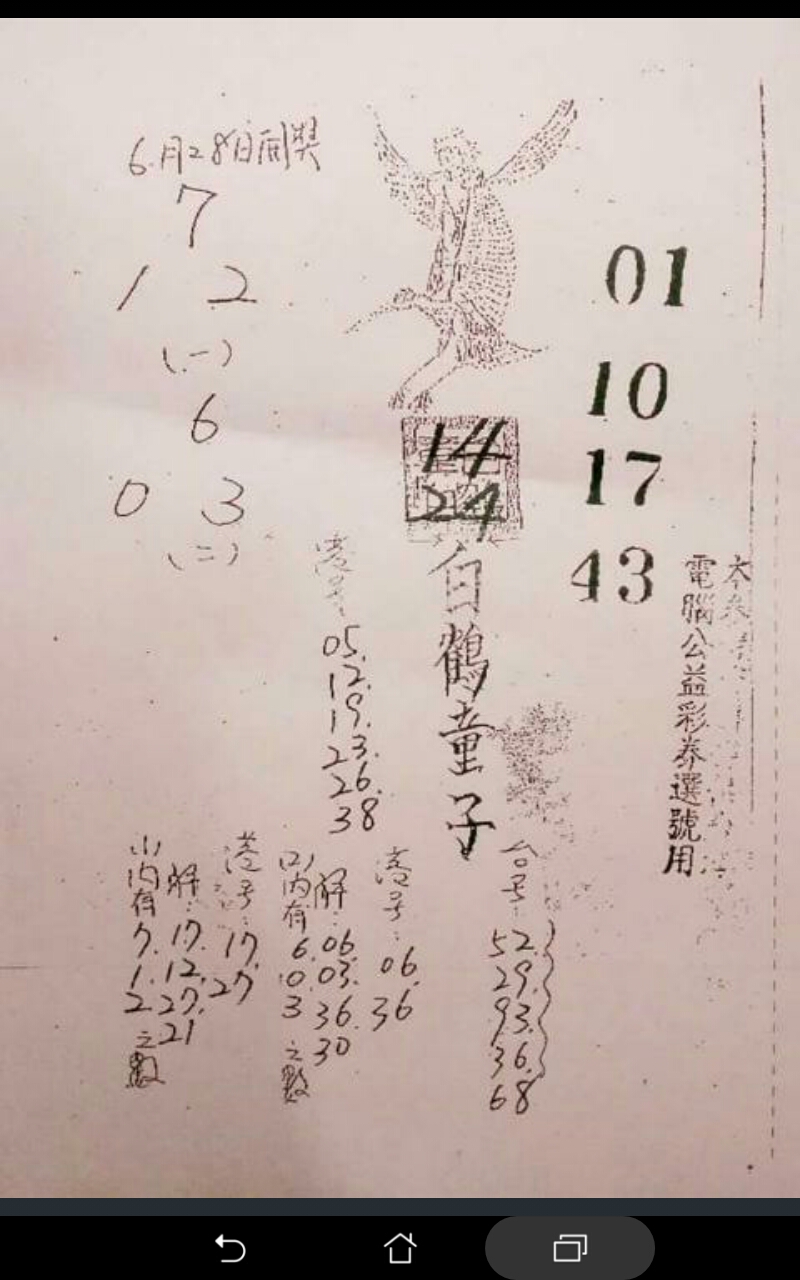 6月28日開獎
7
1 2
(一)
6
0 3
(二)
01
10
17
43
14
24
白鶴童子
電腦公益彩券選號用
港号:
05.
12.
19.
23.
26.
38
台号:
52.
29.
93.
36.
68
港号:
06.
36
(2)內有
6.
0.
3
之數
解:
06.
03.
36.
30
港号:
17.
27
(1)內有
7.
1.
2.
之數
解:
17.
12.
27.
21